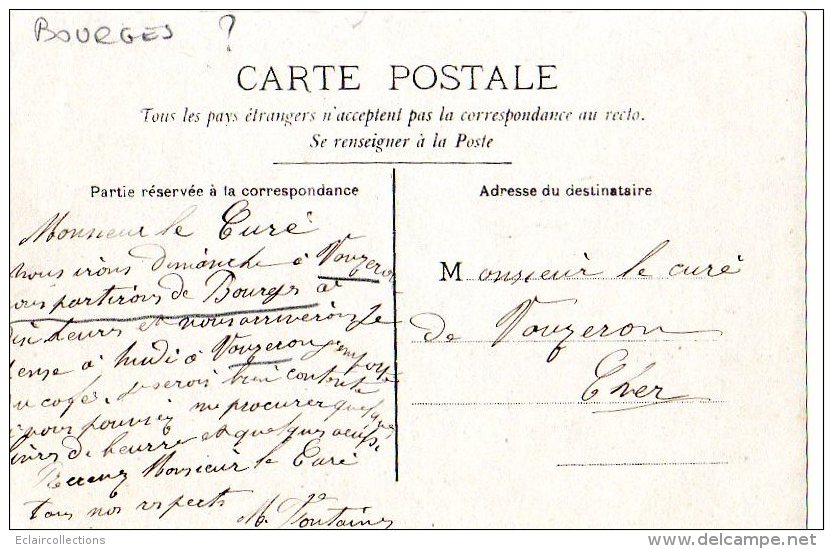 BOURGES ?
CARTE POSTALE
Tous les pays étrangers n'acceptent pas la correspondance au recto.
Se renseigner à la Poste
Partie réservée à la correspondance
Monsieur le Curé
nous irons dimanche à Vouzeron
nous partirons de Bourges à
dix heures et nous arriverons je
pense à midi à Vouzeron
serois bien contente
si vous pouviez me procurer quelques
livres de beurre et quelques oeufs
Recevez Monsieur le Curé
tous nos respects
M. Fontaines
Adresse du destinataire
Monsieur le curé
de Vouzeron
Cher
Eclaircollections
delcampe.net